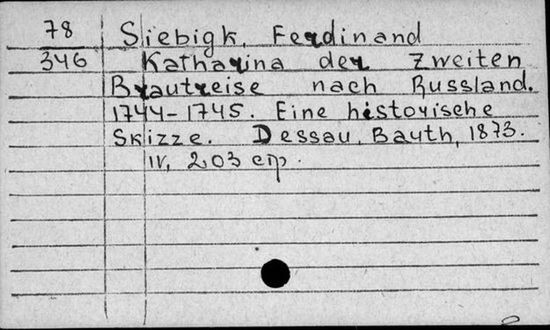 78 Siebigk, Ferdinand
346 Katharina der Zweiten
Brautreise nach Russland.
1744-1745. Eine historische
Skizze. Dessau, Bauth, 1873.
IV, 203 стр.